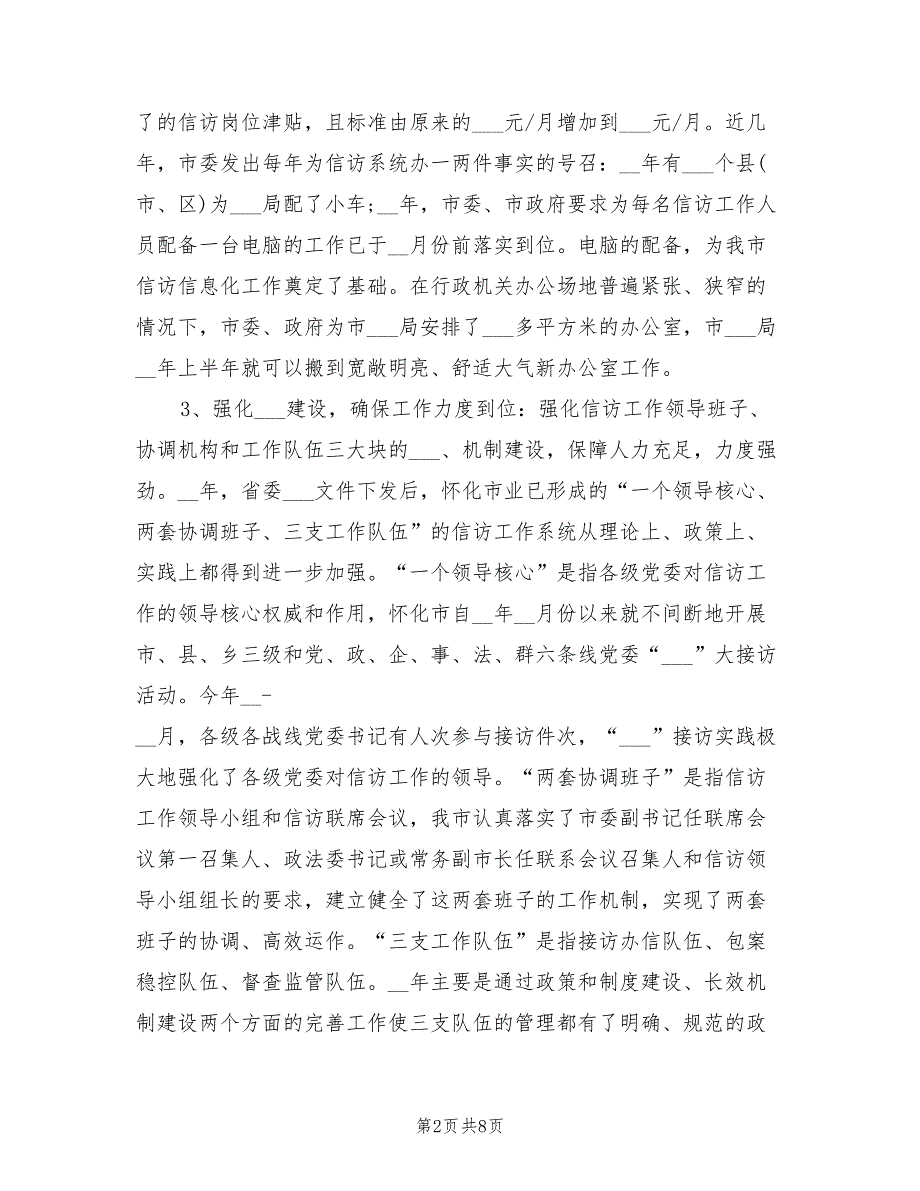 了的信访岗位津贴，且标准由原来的___元/月增加到___元/月。近几
年，市委发出每年为信访系统办一两件事实的号召：__年有___个县(
市、区)为___局配了小车;__年，市委、市政府要求为每名信访工作人
员配备一台电脑的工作已于__月份前落实到位。电脑的配备，为我市
信访信息化工作奠定了基础。在行政机关办公场地普遍紧张、狭窄的
情况下，市委、政府为市___局安排了___多平方米的办公室，市___局
__年上半年就可以搬到宽敞明亮、舒适大气新办公室工作。
3、强化___建设，确保工作力度到位：强化信访工作领导班子、
协调机构和工作队伍三大块的___、机制建设，保障人力充足，力度强
劲。__年，省委___文件下发后，怀化市业已形成的“一个领导核心、
两套协调班子、三支工作队伍”的信访工作系统从理论上、政策上、
实践上都得到进一步加强。“一个领导核心”是指各级党委对信访工
作的领导核心权威和作用，怀化市自__年__月份以来就不间断地开展
市、县、乡三级和党、政、企、事、法、群六条线党委“___”大接访
活动。今年__-
__月，各级各战线党委书记有人次参与接访件次，“___”接访实践极
大地强化了各级党委对信访工作的领导。“两套协调班子”是指信访
工作领导小组和信访联席会议，我市认真落实了市委副书记任联席会
议第一召集人、政法委书记或常务副市长任联系会议召集人和信访领
导小组组长的要求，建立健全了这两套班子的工作机制，实现了两套
班子的协调、高效运作。“三支工作队伍”是指接访办信队伍、包案
稳控队伍、督查监管队伍。__年主要是通过政策和制度建设、长效机
制建设两个方面的完善工作使三支队伍的管理都有了明确、规范的政
第2页 共8页